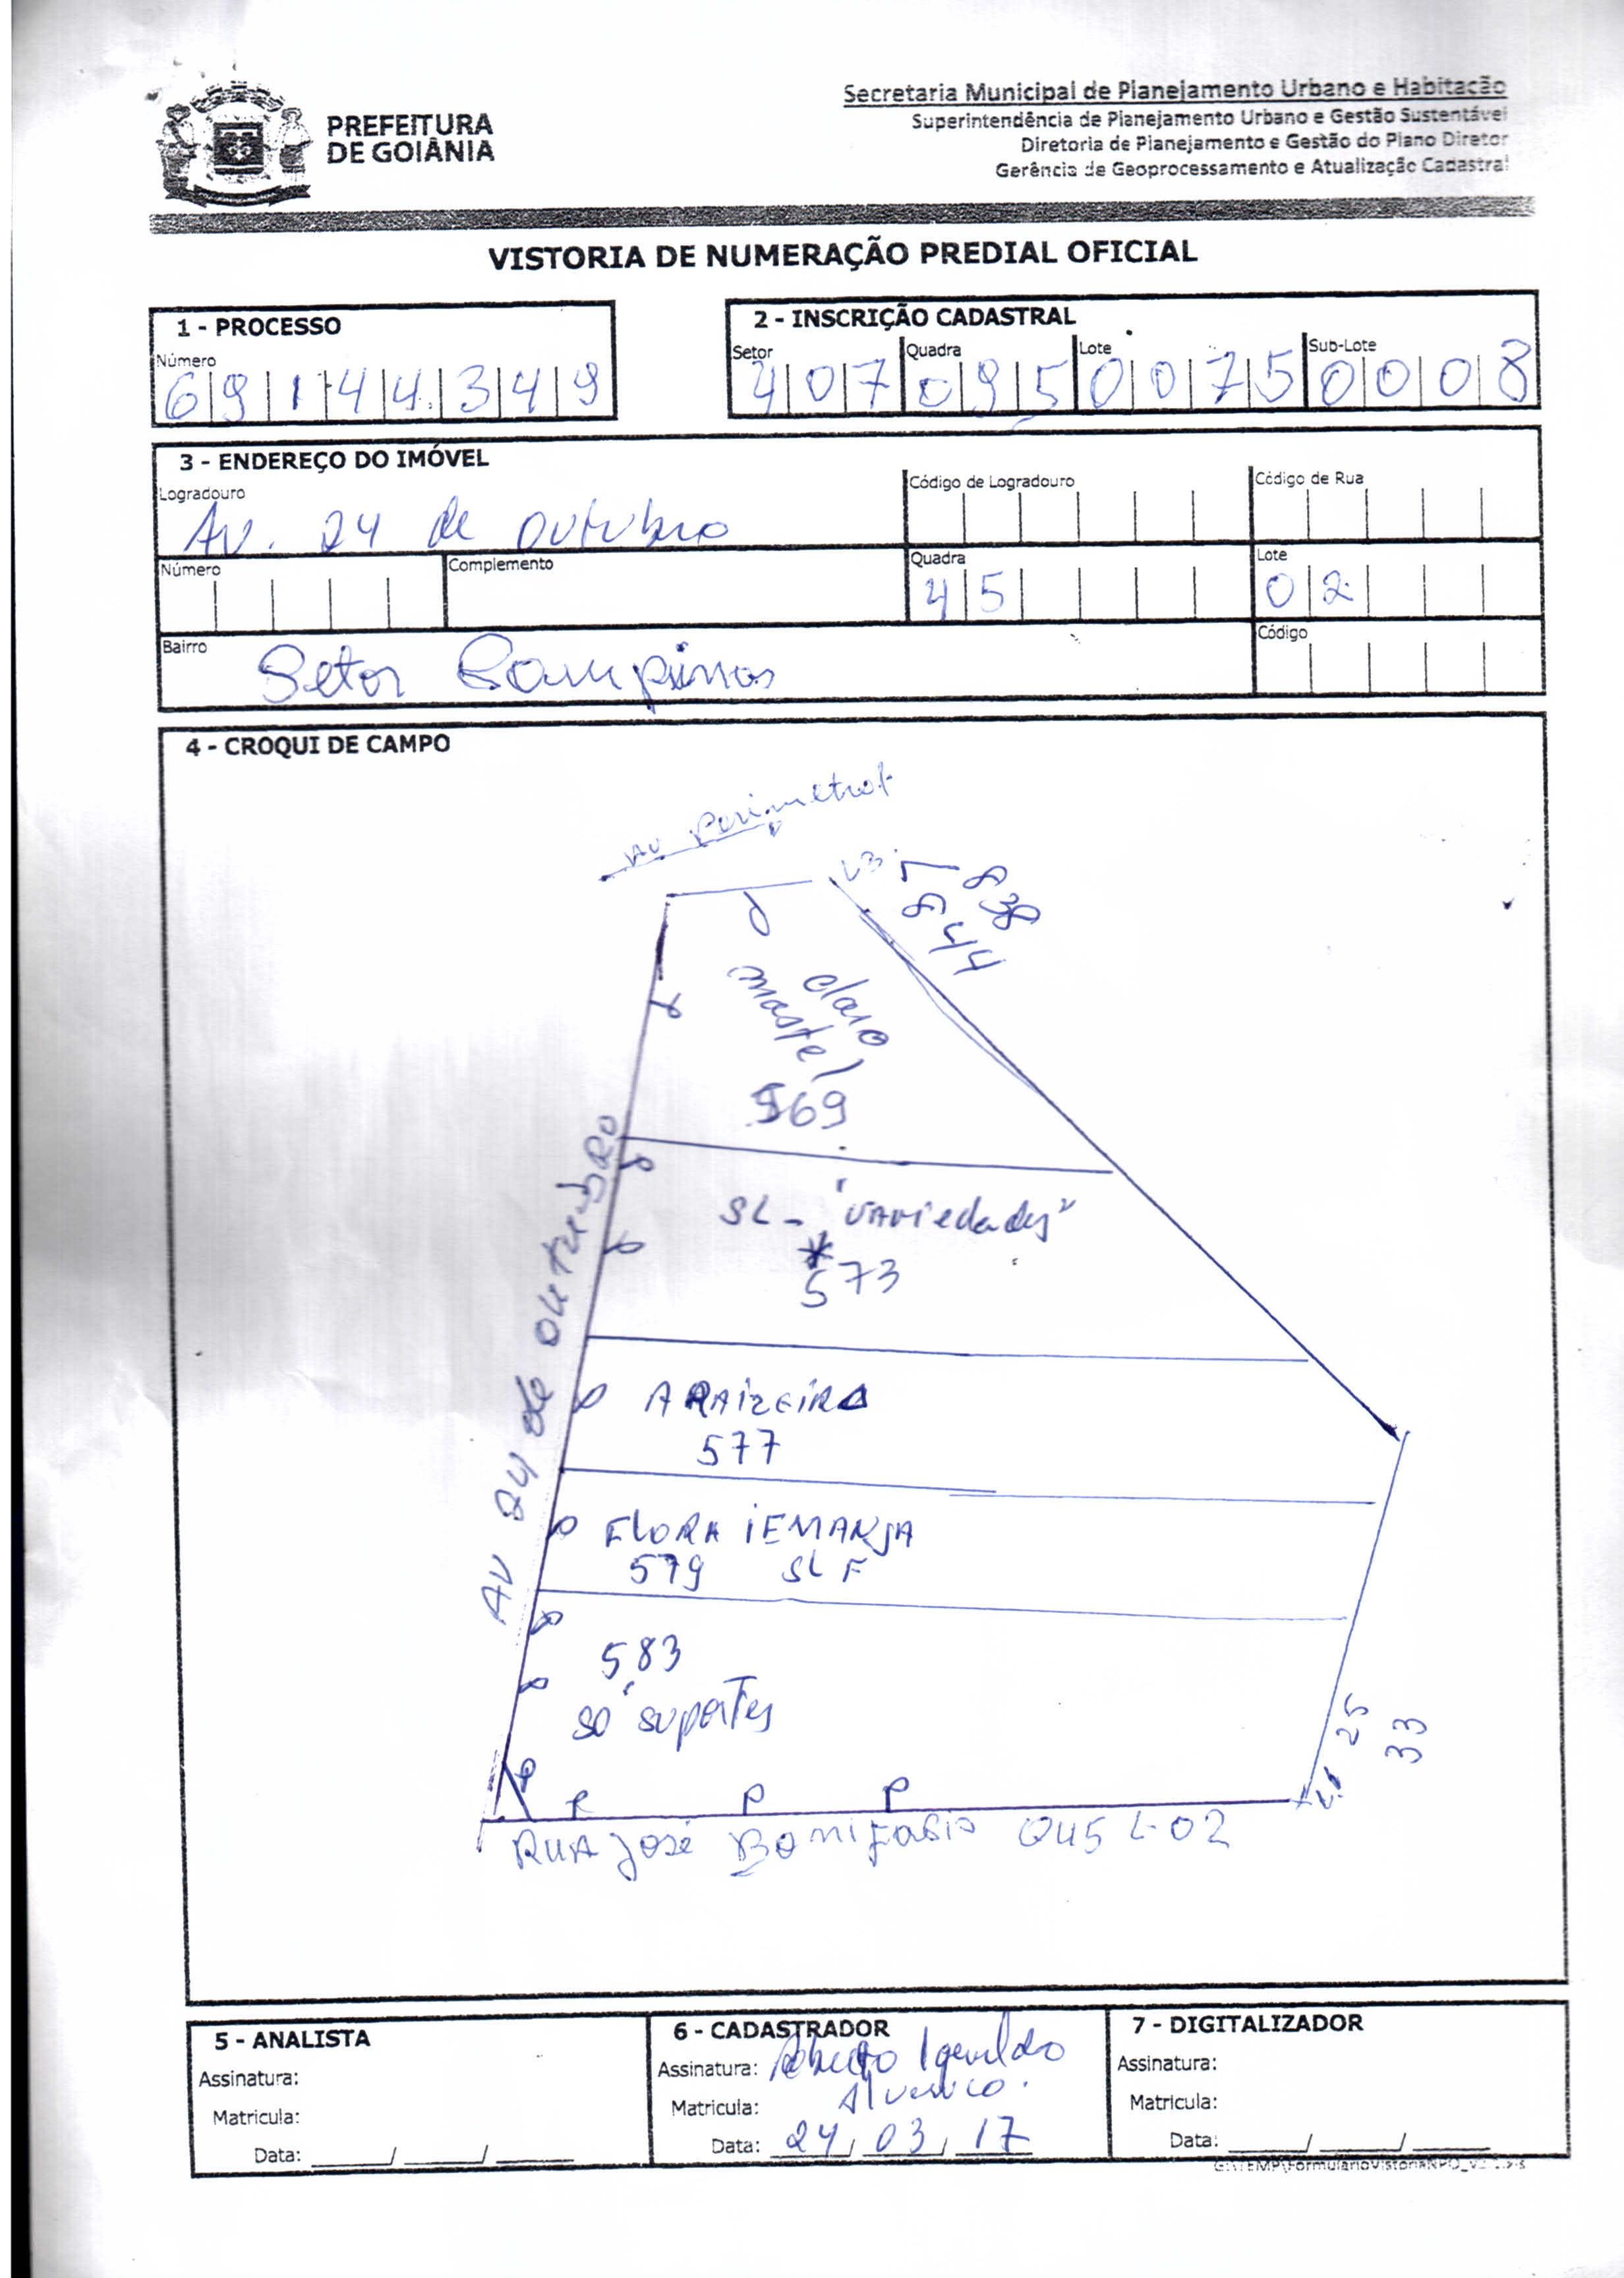 PREFEITURA
DE GOIÂNIA
Secretaria Municipal de Planejamento Urbano e Habitação
Superintendência de Planejamento Urbano e Gestão Sustentável
Diretoria de Planejamento e Gestão do Plano Diretor
Gerência de Geoprocessamento e Atualização Cadastral
VISTORIA DE NUMERAÇÃO PREDIAL OFICIAL
1 - PROCESSO
Número
69144349
2 - INSCRIÇÃO CADASTRAL
Setor Quadra Lote Sub-Lote
407 095 0075 0008
3 - ENDEREÇO DO IMÓVEL
Logradouro Código de Logradouro Código de Rua
Av. 24 de outubro
Número Complemento Quadra Lote
45 02
Bairro Código
Setor Campinas
4 - CROQUI DE CAMPO
Av Perimetral
L3
838
844
claro
maste
569
SL - "variedades"
*
573
ARAIZEIRA
577
FLORA IEMANJA
579 SL F
583
só suportes
AV 24 de outubro
25
33
RUA José Bonifasio Q45 L-02
5 - ANALISTA
Assinatura:
Matricula:
Data: ____/____/____
6 - CADASTRADOR
Assinatura:
Matricula:
Data: 24/03/17
7 - DIGITALIZADOR
Assinatura:
Matricula:
Data: ____/____/____